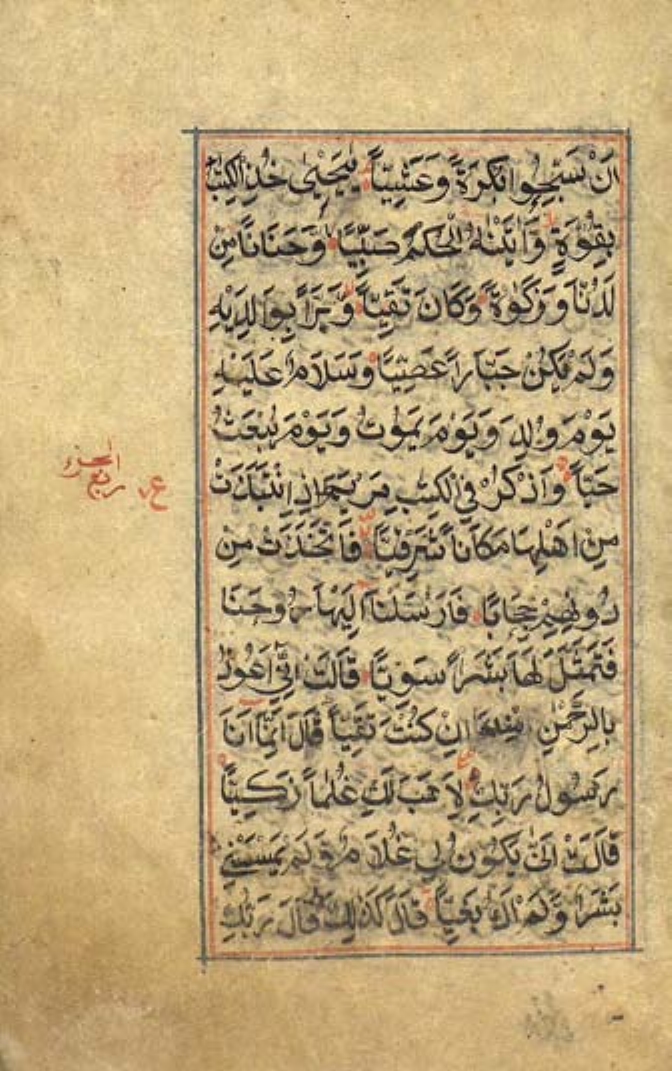 اَنْ سَبِّحُوا بُكْرَةً وَعَشِيًّا يٰيَحْيٰى خُذِ الْكِتٰبَ
بِقُوَّةٍ وَاٰتَيْنٰهُ الْحُكْمَ صَبِيًّا وَحَنَانًا مِنْ
لَدُنَّا وَزَكٰوةً وَكَانَ تَقِيًّا وَّبَرًّا بِوَالِدَيْهِ
وَلَمْ يَكُنْ جَبَّارًا عَصِيًّا وَسَلَامٌ عَلَيْهِ
يَوْمَ وُلِدَ وَيَوْمَ يَمُوتُ وَيَوْمَ يُبْعَثُ
حَيًّا وَاذْكُرْ فِي الْكِتٰبِ مَرْيَمَ اِذِ انْتَبَذَتْ
مِنْ اَهْلِهَا مَكَانًا شَرْقِيًّا فَاتَّخَذَتْ مِنْ
دُونِهِمْ حِجَابًا فَاَرْسَلْنَا اِلَيْهَا رُوحَنَا
فَتَمَثَّلَ لَهَا بَشَرًا سَوِيًّا قَالَتْ اِنِّي اَعُوذُ
بِالرَّحْمٰنِ مِنْكَ اِنْ كُنْتَ تَقِيًّا قَالَ اِنَّمَا اَنَا
رَسُولُ رَبِّكِ لِاَهَبَ لَكِ غُلٰمًا زَكِيًّا
قَالَتْ اَنّٰى يَكُونُ لِي غُلَامٌ وَلَمْ يَمْسَسْنِي
بَشَرٌ وَّلَمْ اَكُ بَغِيًّا قَالَ كَذٰلِكِ قَالَ رَبُّكِ
ربع الجزء
ع